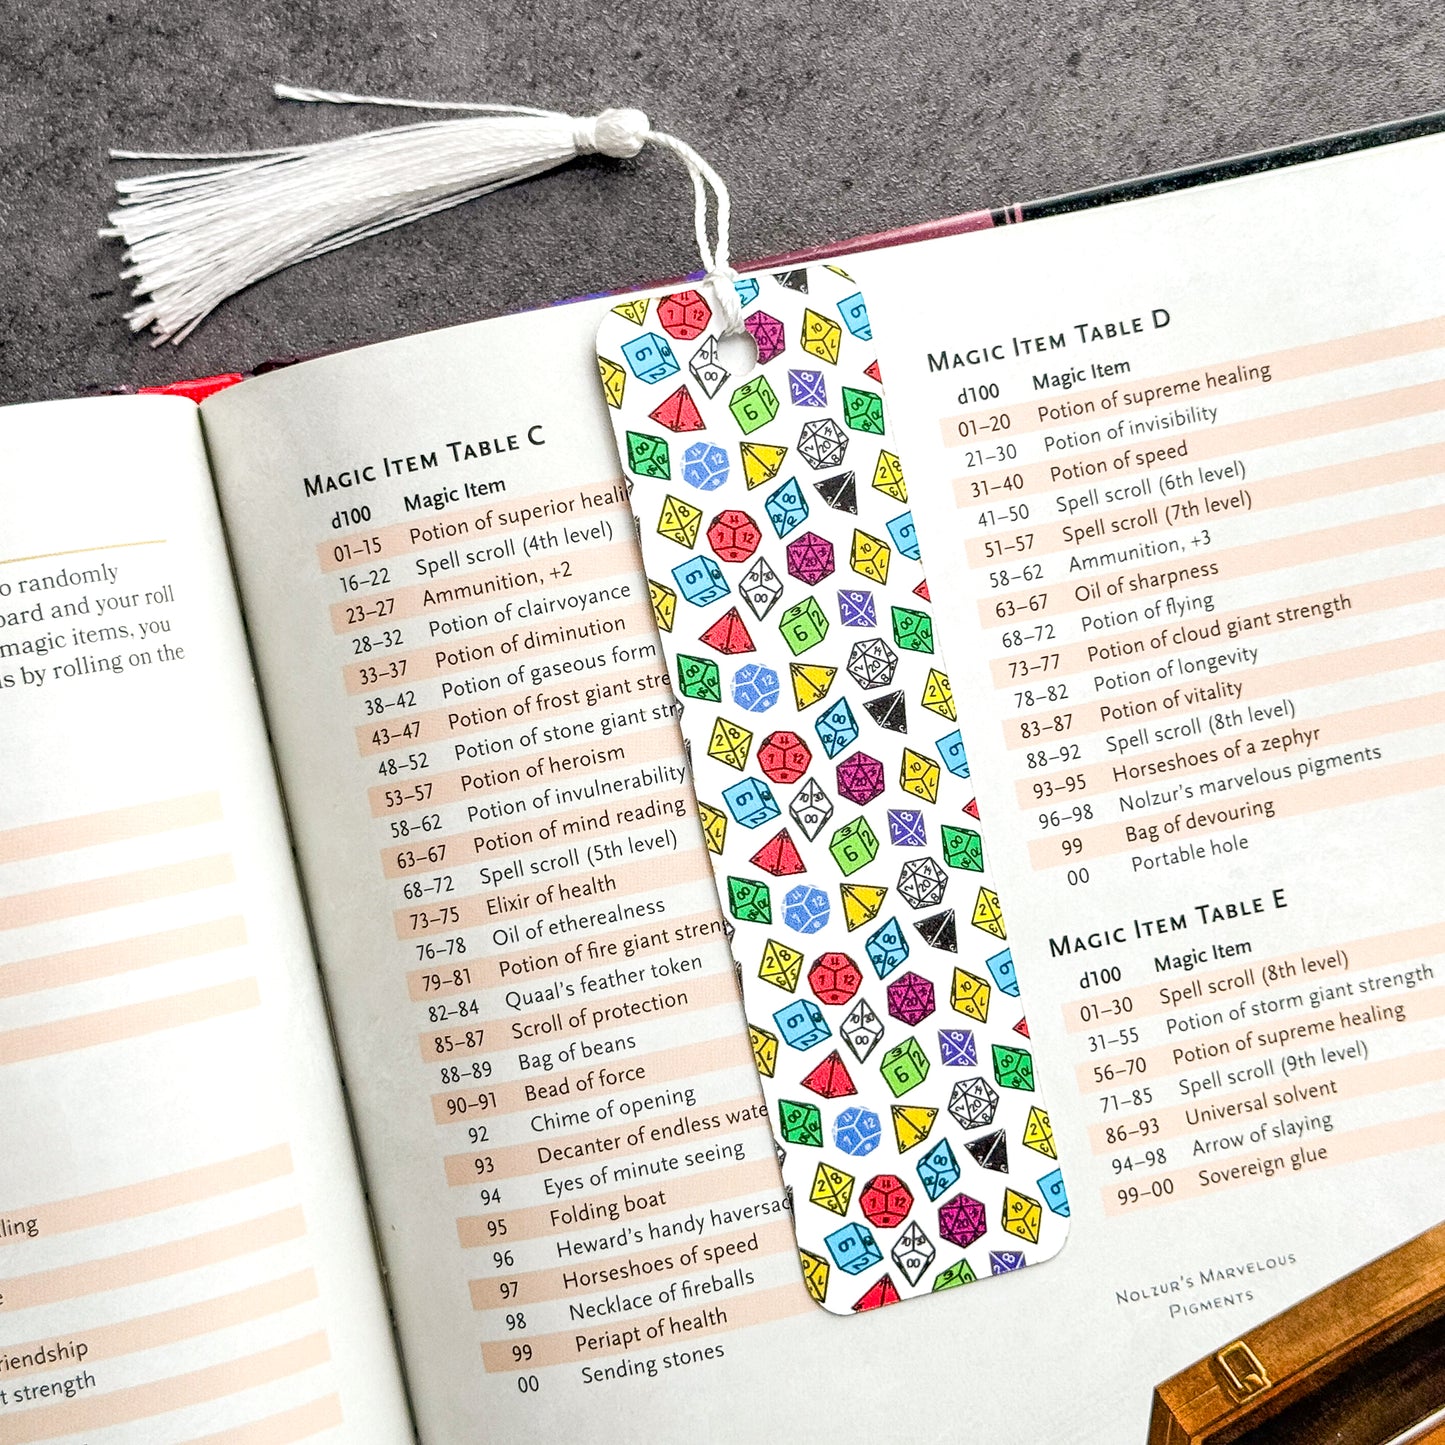 o randomly
oard and your roll
magic items, you
is by rolling on the
ling
riendship
t strength
MAGIC ITEM TABLE C
d100 Magic Item
01–15 Potion of superior heali
16–22 Spell scroll (4th level)
23–27 Ammunition, +2
28–32 Potion of clairvoyance
33–37 Potion of diminution
38–42 Potion of gaseous form
43–47 Potion of frost giant stre
48–52 Potion of stone giant str
53–57 Potion of heroism
58–62 Potion of invulnerability
63–67 Potion of mind reading
68–72 Spell scroll (5th level)
73–75 Elixir of health
76–78 Oil of etherealness
79–81 Potion of fire giant stren
82–84 Quaal's feather token
85–87 Scroll of protection
88–89 Bag of beans
90–91 Bead of force
92 Chime of opening
93 Decanter of endless wate
94 Eyes of minute seeing
95 Folding boat
96 Heward's handy haversac
97 Horseshoes of speed
98 Necklace of fireballs
99 Periapt of health
00 Sending stones
MAGIC ITEM TABLE D
d100 Magic Item
01–20 Potion of supreme healing
21–30 Potion of invisibility
31–40 Potion of speed
41–50 Spell scroll (6th level)
51–57 Spell scroll (7th level)
58–62 Ammunition, +3
63–67 Oil of sharpness
68–72 Potion of flying
73–77 Potion of cloud giant strength
78–82 Potion of longevity
83–87 Potion of vitality
88–92 Spell scroll (8th level)
93–95 Horseshoes of a zephyr
96–98 Nolzur's marvelous pigments
99 Bag of devouring
00 Portable hole
MAGIC ITEM TABLE E
d100 Magic Item
01–30 Spell scroll (8th level)
31–55 Potion of storm giant strength
56–70 Potion of supreme healing
71–85 Spell scroll (9th level)
86–93 Universal solvent
94–98 Arrow of slaying
99–00 Sovereign glue
NOLZUR'S MARVELOUS
PIGMENTS